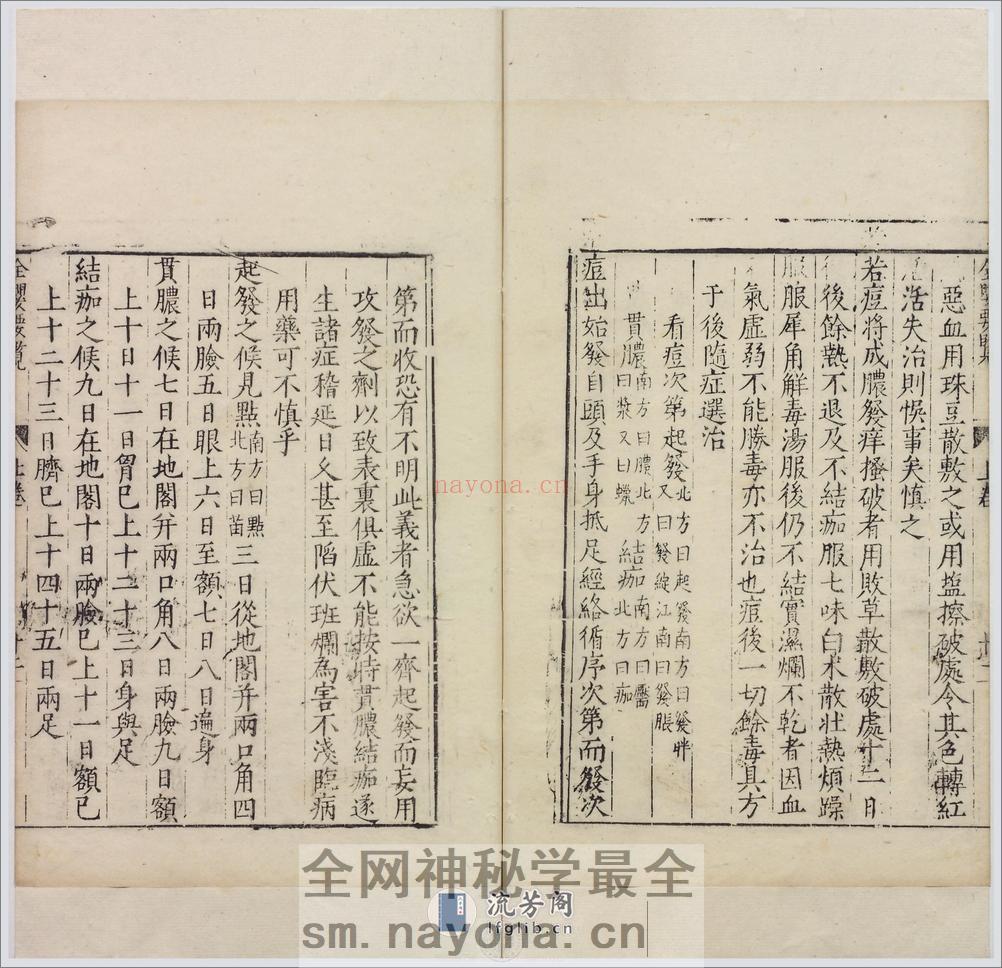 惡血用珠豆散敷之或用塩擦破處令其色轉紅
活失治則悞事矣慎之
若痘將成膿發痒搔破者用敗草散敷破處十二日
後餘熱不退及不結痂服七味白朮散壯熱煩躁
服犀角解毒湯服後仍不結實濕爛不乾者因血
氣虛弱不能勝毒亦不治也痘後一切餘毒具方
于後隨症選治
看痘次第起發北方曰起發南方曰發胖又曰發綻江南曰發脹
貫膿南方曰膿北方曰漿又曰蠟 結痂南方曰靨北方曰痂
痘出始發自頭及手身抵足經絡循序次第而發次
第而收恐有不明此義者急欲一齊起發而妄用
攻發之劑以致表裏俱虛不能按時貫膿結痂遂
生諸症稽延日久甚至陷伏班爛為害不淺臨病
用藥可不慎乎
起發之候見點南方曰點北方曰苗三日從地閣并兩口角四
日兩臉五日眼上六日至額七日八日遍身
貫膿之候七日在地閣并兩口角八日兩臉九日額
上十日十一日胷已上十二十三日身與足
結痂之候九日在地閣十日兩臉已上十一日額已
上十二十三日臍已上十四十五日兩足
上卷
nayona.cn
全网神秘学最全
流芳阁
lfglib.cn
sm.nayona.cn